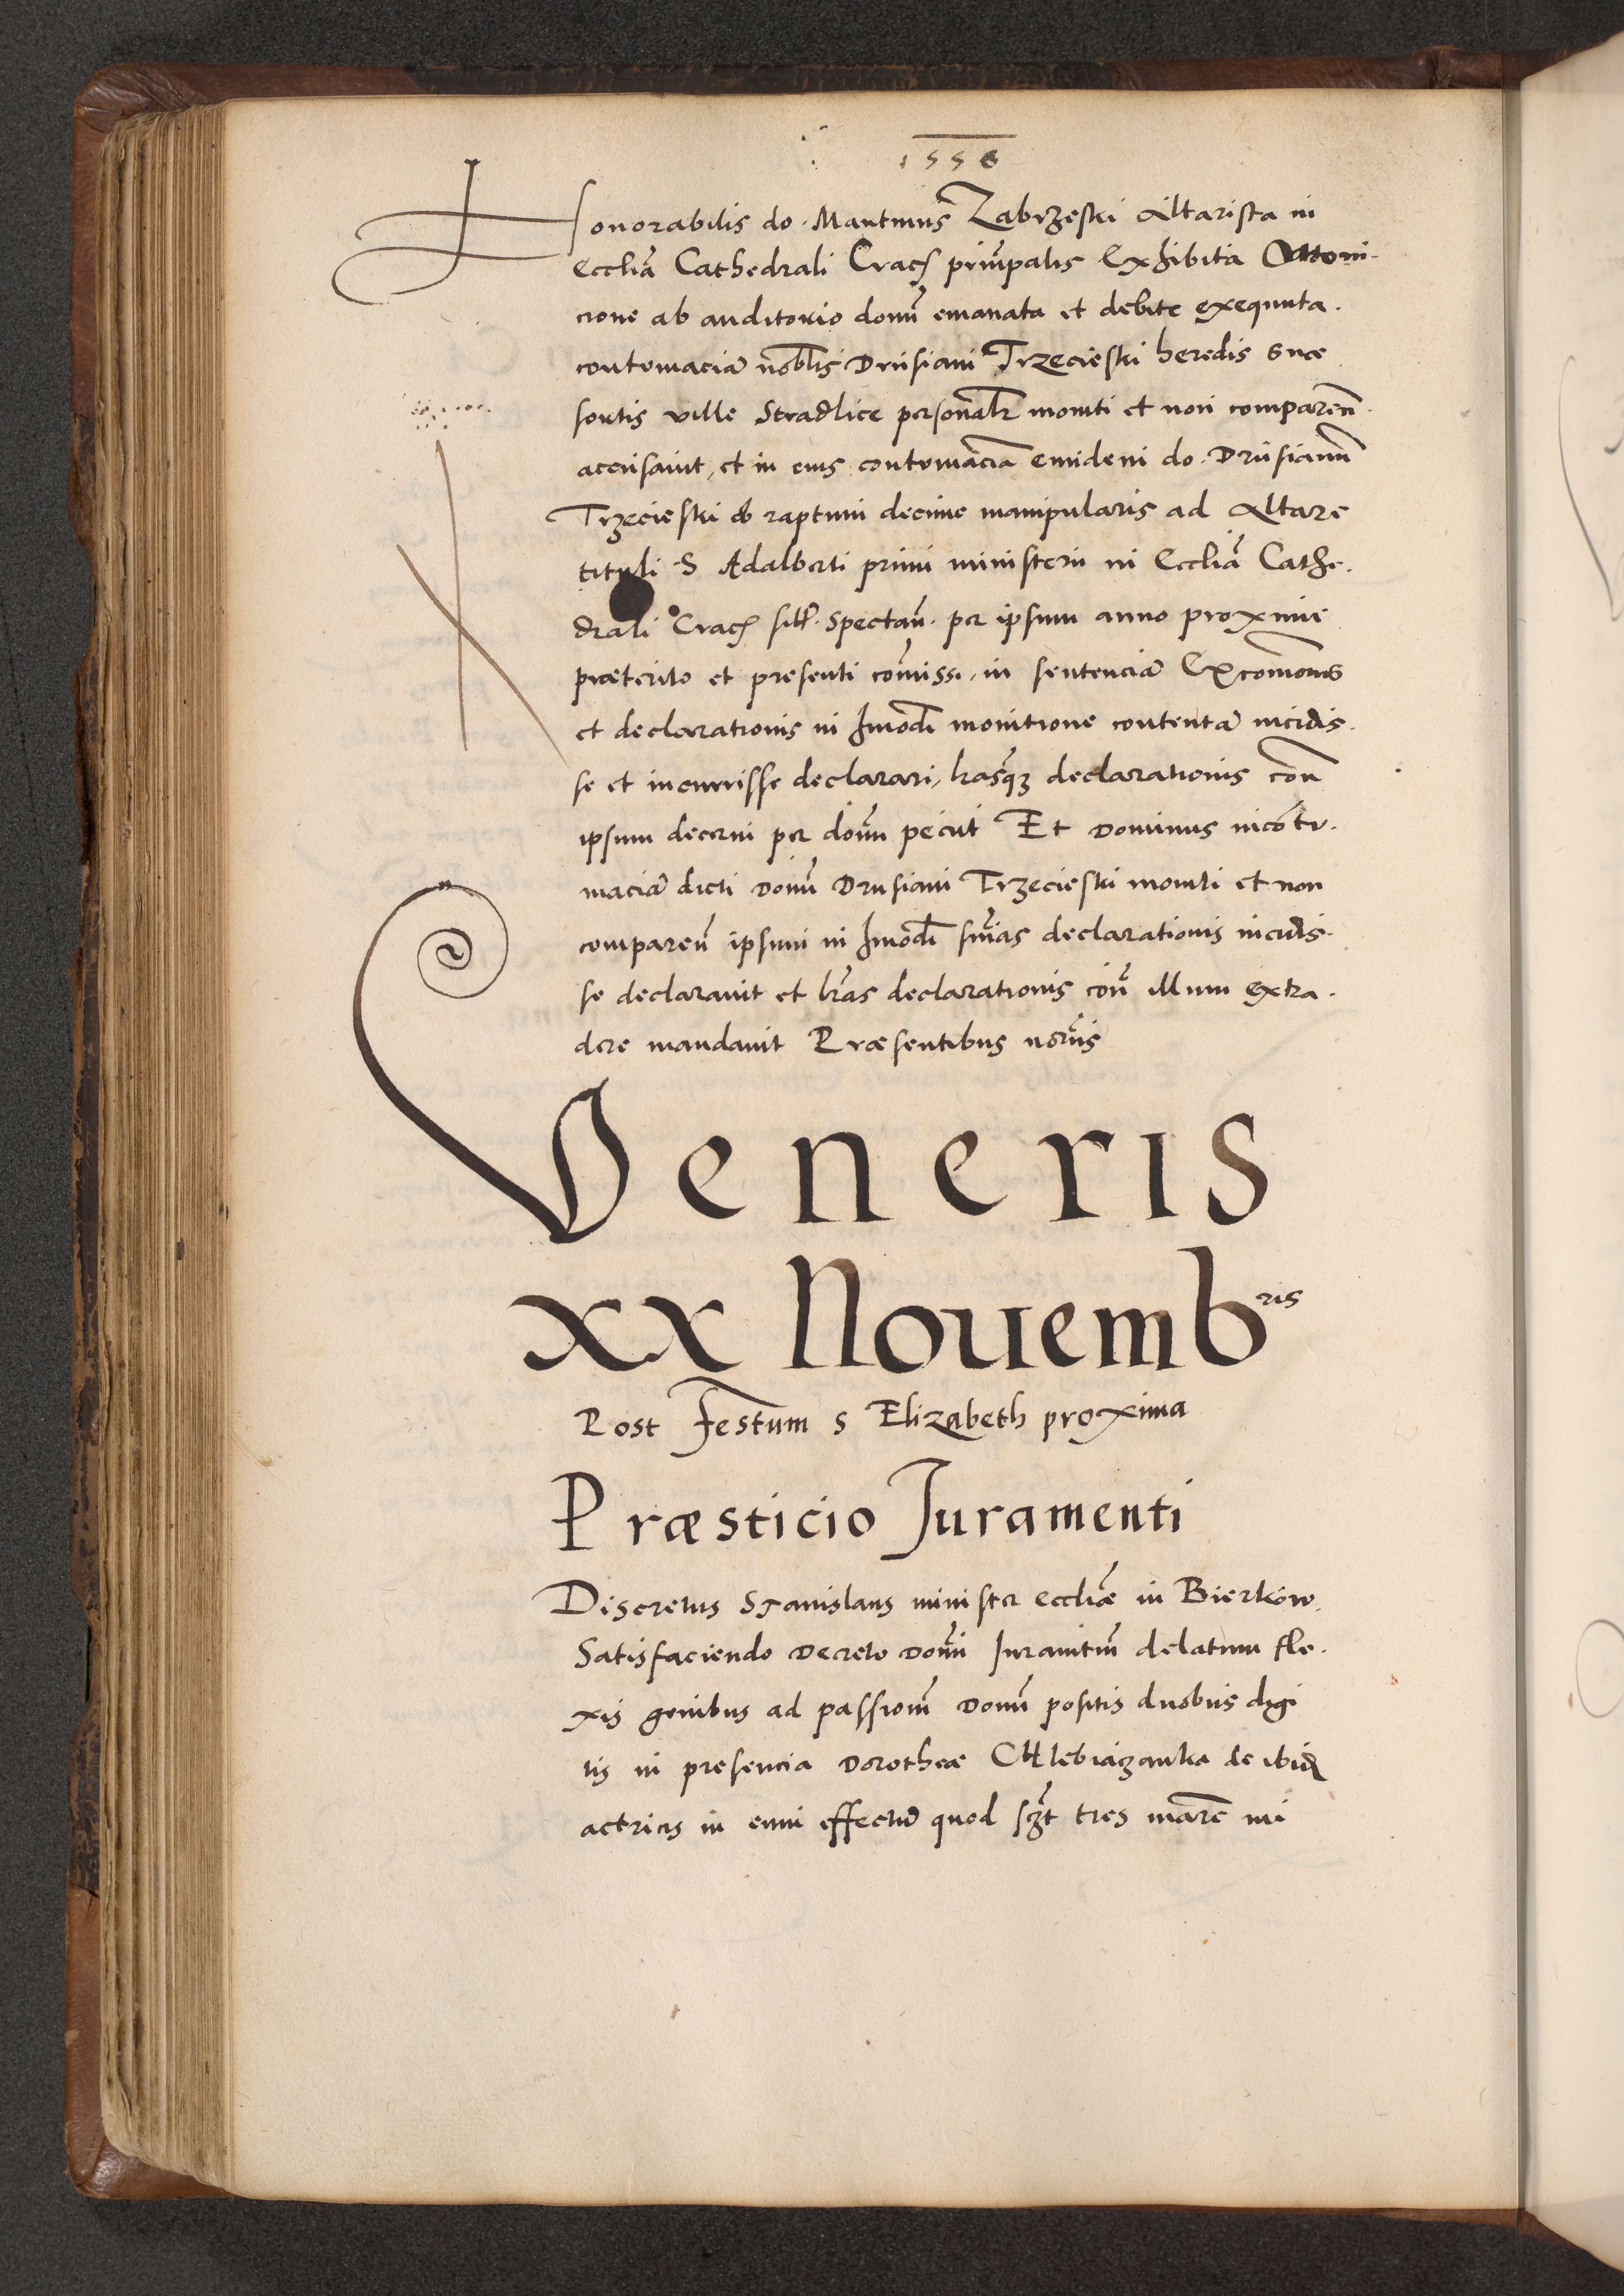 1556
Honorabilis do. Martinus Zabrzeski Altarista in
Ecclia Cathedrali Crac principalis Exhibita Moni-
cione ab auditorio domi emanata et debite exequuta.
contumacia noblis Drusiani Trzecieski heredis suæ
sortis ville Stradlice personalr moniti et non comparen.
accusavit, et in eius contumacia eundem do. Drusianum
Trzecieski ob raptum decime manipularis ad Altare
tituli S Adalberti primi ministerii in Ecclia Cathe.
drali Crac sibi spectan. per ipsum anno proxime
præterito et presenti comissi, in sentencia Excomonis
et declarationis in hmodi monitione contenta incidis.
se et incurrisse declarari, lrasq3 declarationis con
ipsum decerni per domi peciit Et Dominus incontu.
macia dicti Domi Drusiani Trzecieski moniti et non
comparen ipsum in hmodi snias declarationis incidis.
se declaravit et lras declarationis con illum extra.
dere mandavit Præsentibus noriis
Veneris
xx Nouembris
Post Festum s Elizabeth proxima
Præsticio Juramenti
Discretus Stanislaus minister eccliæ in Bierkow.
Satisfaciendo Decreto Domi Juramtum delatum fle.
xis genibus ad passionem Domi positis duobus digi
tis in presencia Dorotheæ Chlebiczanka de ibid
actricis in eum effectu quod tres